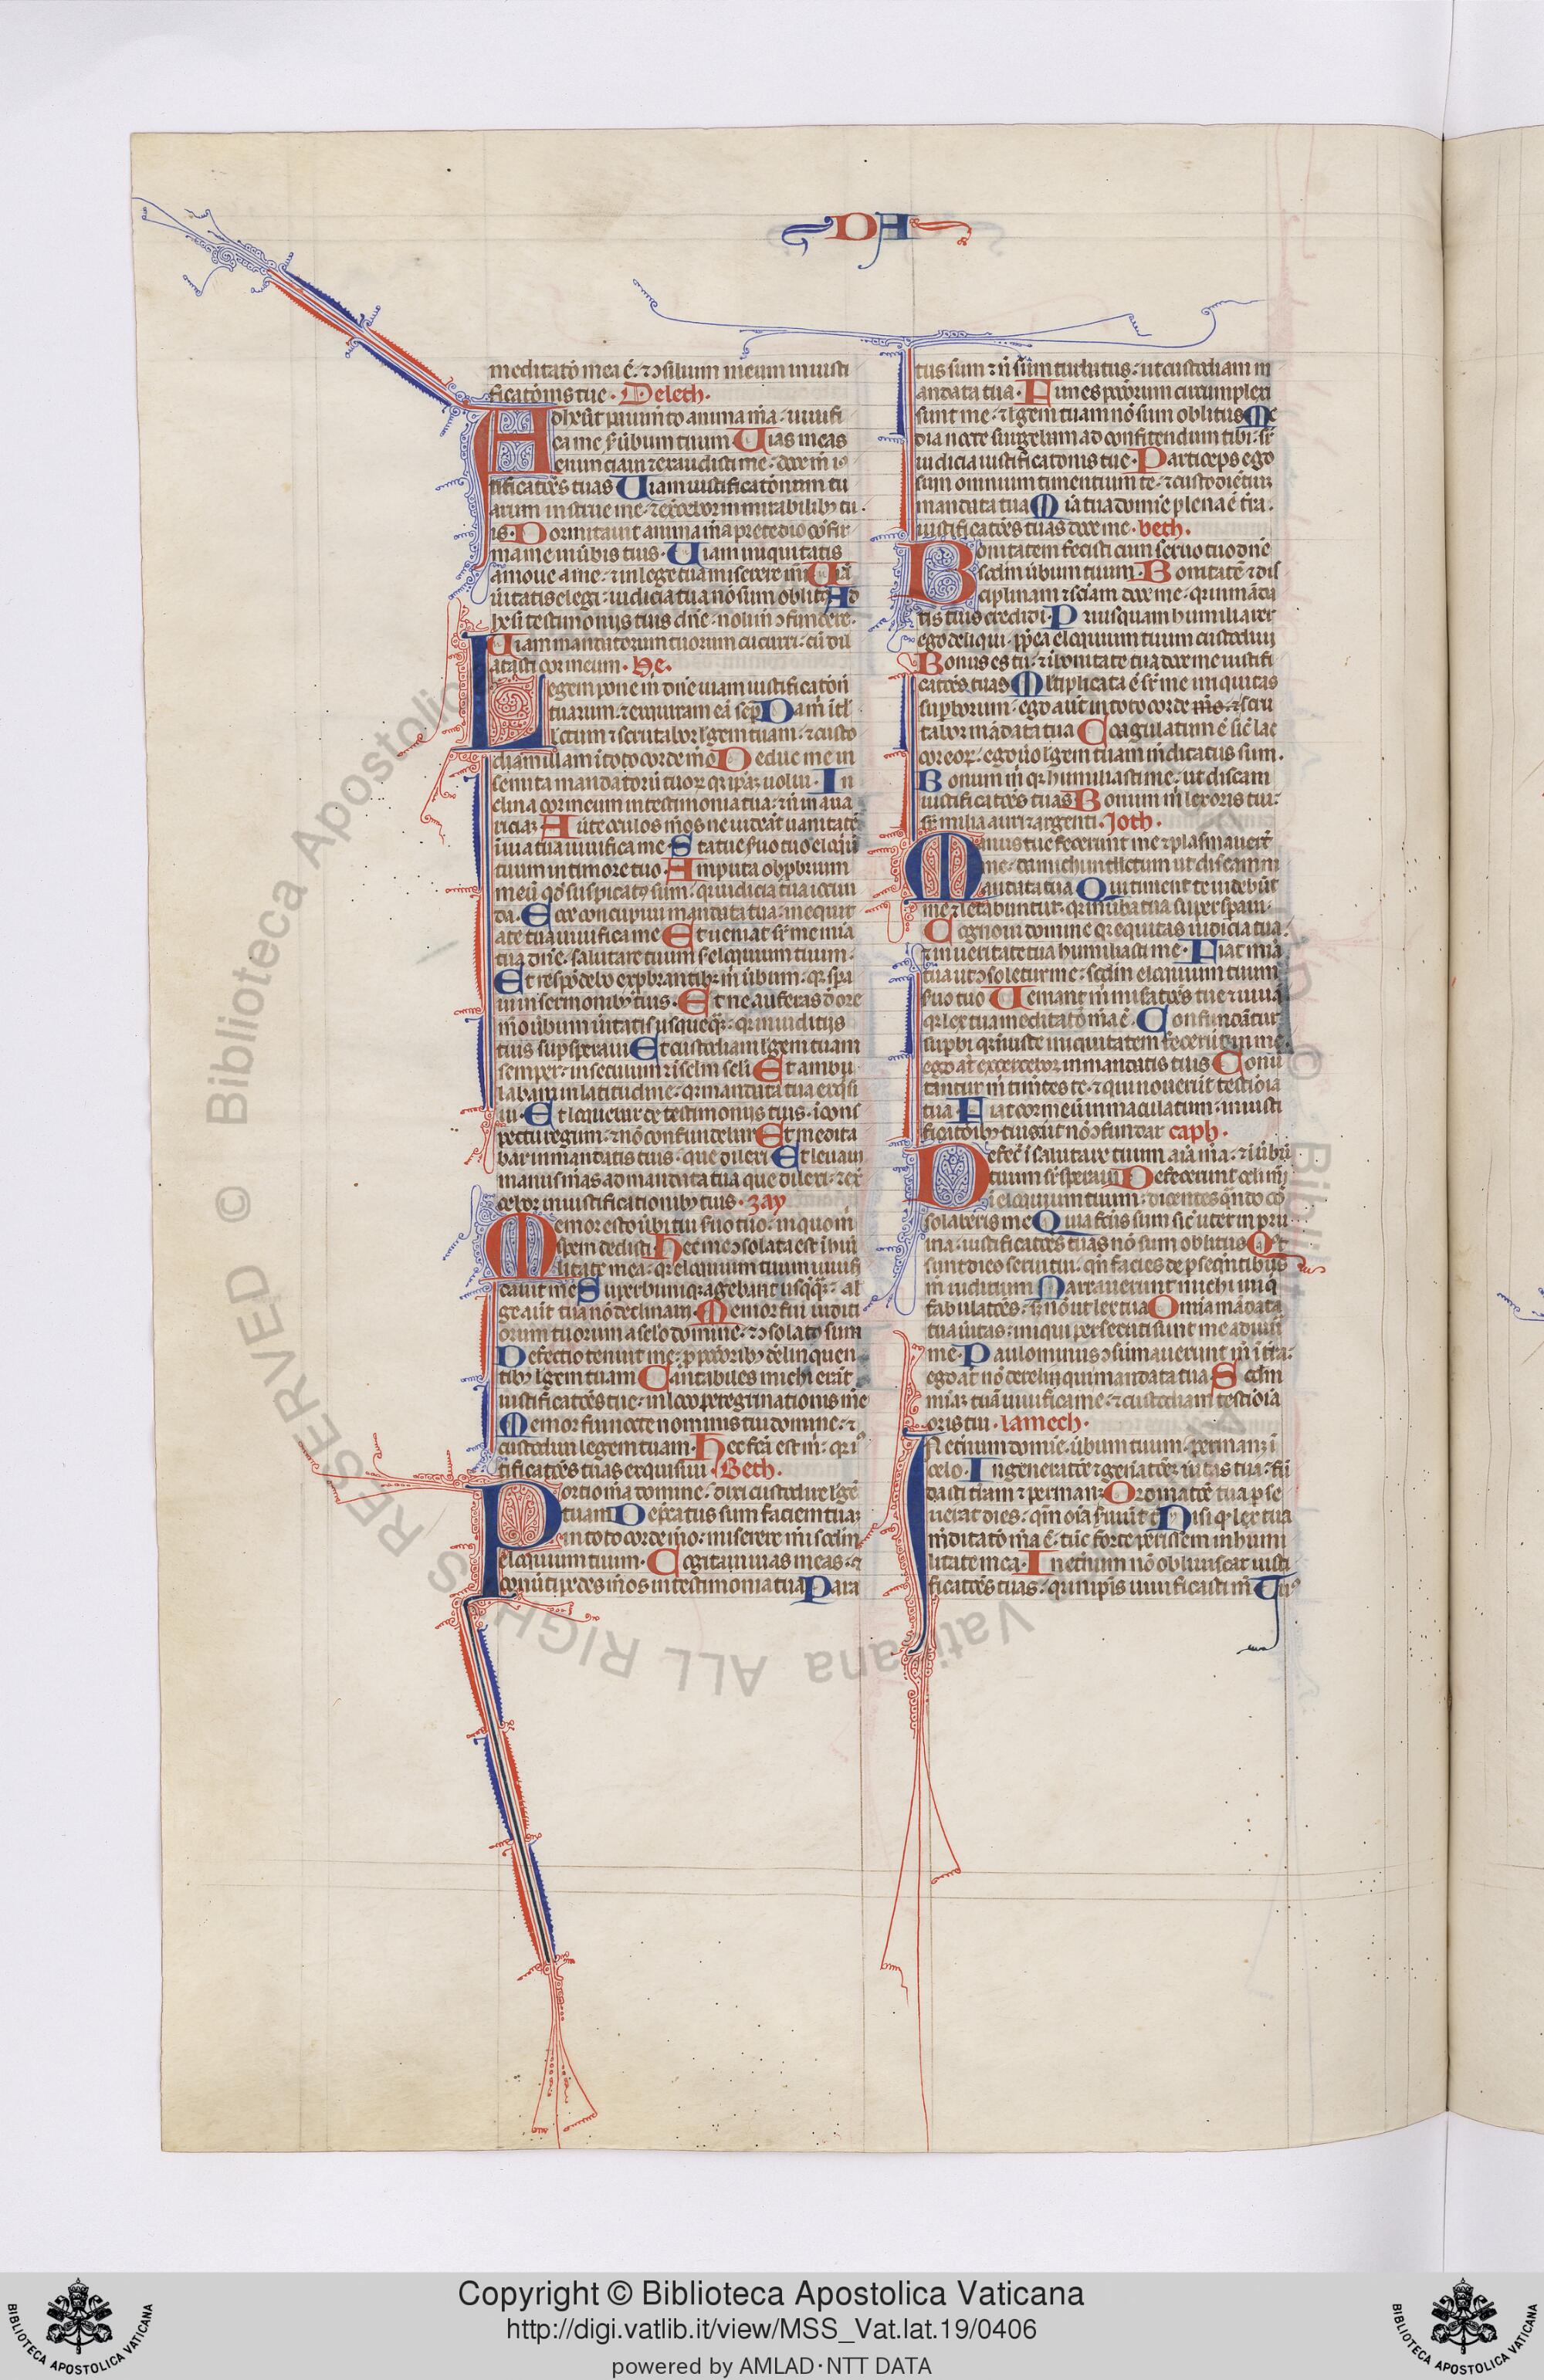 DA
meditatō mea ē. ⁊ ↄsilium meum iniusti
ficatōnis tue. Deleth.
Adhesit pauimēto anima m̄a. uiuifi
ca me s̄ uerbum tuum Uias meas
enunciaui ⁊ exaudisti me. doce m̄ ius
tificatōēs tuas Uiam iustificatōnum tu
arum instrue me. ⁊ exc̄ebor in mirabilibꝫ tu
is. Dormitauit anima m̄a pre tedio cōfir
ma me in ūbis tuis. Uiam iniquitatis
amoue a me. ⁊ in lege tua miserere m̄i
ūitatis elegi. iudicia tua nō sum oblitꝰ Ad
hesi testimonijs tuis dn̄e. noli m̄ ↄfundere.
Uiam mandatorum tuorum cucurri. cū dil
atasti cor meum. he.
Legem pone m̄ dn̄e uiam iustificatōn
tuarum. ⁊ exquiram eā sēp Da m̄ itl̄
lectum ⁊ scrutabor lgem tuam. ⁊ custo
diam illam ī toto corde m̄o Deduc me in
semita mandatorū tuoꝝ qr ip̄aꝫ uolui. In
clina cor meum in testimonia tua. ⁊ n̄ in aua
riciaꝫ Aūte oculos m̄os ne uideāt uanitatē
ī uia tua uiuifica me. Statue s̄uo tuo elqū
tuum in timore tuo. Amputa obprbrium
meū qd̄ suspicatꝰ sum. qr iudicia tua iocun
da. Ecce concupiui mandata tua. in equit
ate tua uiuifica me Et ueniat sr̄ me mīa
tua dn̄e. salutare tuum s̄ elquium tuum.
Et respōdebo exprbrantibꝫ m̄ ūbum. qr spa
ui in sermonibꝫ tuis. Et ne auferas d̄ ore
m̄o ūbum ūitatis usquequaqꝫ. qr in iudicijs
tuis supsperaui Et custodiam lgem tuam
semper. in seculum ⁊ ī sclm̄ scli Et ambu
labam in latitudine. qr mandata tua exqsi
ui. Et loquebar de testimonijs tuis. ī cons
pectu regum. ⁊ nō confundebar Et medita
bar in mandatis tuis. que dilexi Et leuaui
manus m̄as ad mandata tua que dilexi. ⁊ ex
cebor in iustificationibꝫ tuis. zay
Memor esto ūbi tui s̄uo tuo. in quo m̄
spem dedisti. Hec me ↄsolata est ī hūi
litate mea. qr elquium tuum uiuifi
cauit me Superbi iniq agebant usqq̄qꝫ. a l
ge aūt tua nō declinaui. Memor fui iudici
orum tuorum a sclo domine. ⁊ ↄsolatꝰ sum
Defectio tenuit me. p̄ pctōribꝫ delinquen
tibꝫ lgem tuam Cantabiles michi erāt
iustificatōēs tue. in loco peregrinationis me
Memor fui nocte nominis tui domine. ⁊
custodiui legem tuam. Hec fcā est m̄. qr iꝰ
tificatōēs tuas exquisiui. Beth.
Portio m̄a domine. dixi custodire lgē
tuam Deprecatus sum faciem tuaꝫ
in toto corde m̄o. miserere m̄i scdm
elquium tuum. Cogitaui uias meas. ⁊
conūti pedes m̄os in testimonia tua Para
tus sum ⁊ n̄ sum turbatus. ut custodiam m
andata tua. Funes pctōrum circumplexi
sunt me. ⁊ lgem tuam nō sum oblitus Me
dia nocte surgebam ad confitendum tibi. sr̄
iudicia iustificatonis tue. Particeps ego
sum omnium timentium te. ⁊ custodientiū
mandata tua Mīa tua domine plena ē tr̄a.
iustificatōēs tuas doce me. beth.
Bonitatem fecisti cum seruo tuo dn̄e
scdm ūbum tuum. Bonitatē ⁊ dis
ciplinam ⁊ sciam doce me. qr in mānda
tis tuis credidi. Priusquam humiliarer
ego deliqui. pp̄ea elquium tuum custodiui
Bonus es tu. ⁊ ī bonitate tua doce me iustifi
catōēs tuas Mltiplicata ē sr̄ me iniquitas
supborum. ego aūt in toto corde m̄o ⁊ scru
tabor mādata tua Coagulatum ē sic̄ lac
cor eoꝝ. ego ūo lgem tuam m̄ditatus sum.
Bonum m̄ qr humiliasti me. ut discam
iustificatōēs tuas Bonum m̄ lex oris tui.
sr̄ milia auri ⁊ argenti. Joth.
Manus tue fecerunt me ⁊ plasmauerūt
me. da michi intllectum ut discam m
andata tua Qui timent te uidebūt
me ⁊ letabuntur. qr in ūba tua superspaui.
Cognoui domine qr equitas iudicia tua.
⁊ in ueritate tua humiliasti me. Fiat mīa
tua ut ↄsoletur me. scdm elquium tuum
s̄uo tuo Ueniant m̄ misatōēs tue ⁊ uiuā
qr lex tua meditatō m̄a ē. Confundātur
supbi qr iniuste iniquitatem fecerūt in me.
ego at̄ excercebor in mandatis tuis Conū
tantur m̄ timētes te. ⁊ qui nouerūt testiōia
tua. Fiat cor meū immaculatum. in iusti
ficatōibꝫ tuis ut nō ↄfundar caph.
Defec̄ ī salutare tuum aīa m̄a. ⁊ ī ūbū
tuum sr̄speraui Defecerunt oculi m̄
ī elquium tuum. dicentes qn̄do co
solaberis me Quia fcūs sum sic̄ uter in pru
ina. iustificatōēs tuas nō sum oblitus Qt̄
sunt dies serui tui. qn̄ facies de p̄seqntibus
m̄ iuditium Narrauerunt michi iniq
fabulatōēs. s̄ nō ut lex tua Omīa mādata
tua ūitas. iniqui persecuti sunt me adiuua
me. Paulominus ↄsūmauerunt m̄ ī tr̄a.
ego at̄ nō dereliqui mandata tua Scdm
mīaꝫ tuā uiuifica me. ⁊ custodiam testiōia
oris tui. lamech.
In eternum domīe. ūbum tuum. permanꝫ ī
celo. In generatōē ⁊ genatōēꝫ ūitas tua. fū
dasti tram ⁊ permanꝫ Ordinatōē tua p̄se
uerat dies. qm̄ oīa s̄uiūt t̄ Nisi q̄ lex tua
m̄ditatō m̄a ē. tūc forte perissem in humi
litate mea. In eternum nō obliuiscar iusti
ficatōēs tuas. qr in ip̄is uiuificasti m̄ Tuꝰ
Copyright © Biblioteca Apostolica Vaticana
http://digi.vatlib.it/view/MSS_Vat.lat.19/0406
powered by AMLAD·NTT DATA
BIBLIOTECA APOSTOLICA VATICANA
BIBLIOTECA APOSTOLICA VATICANA